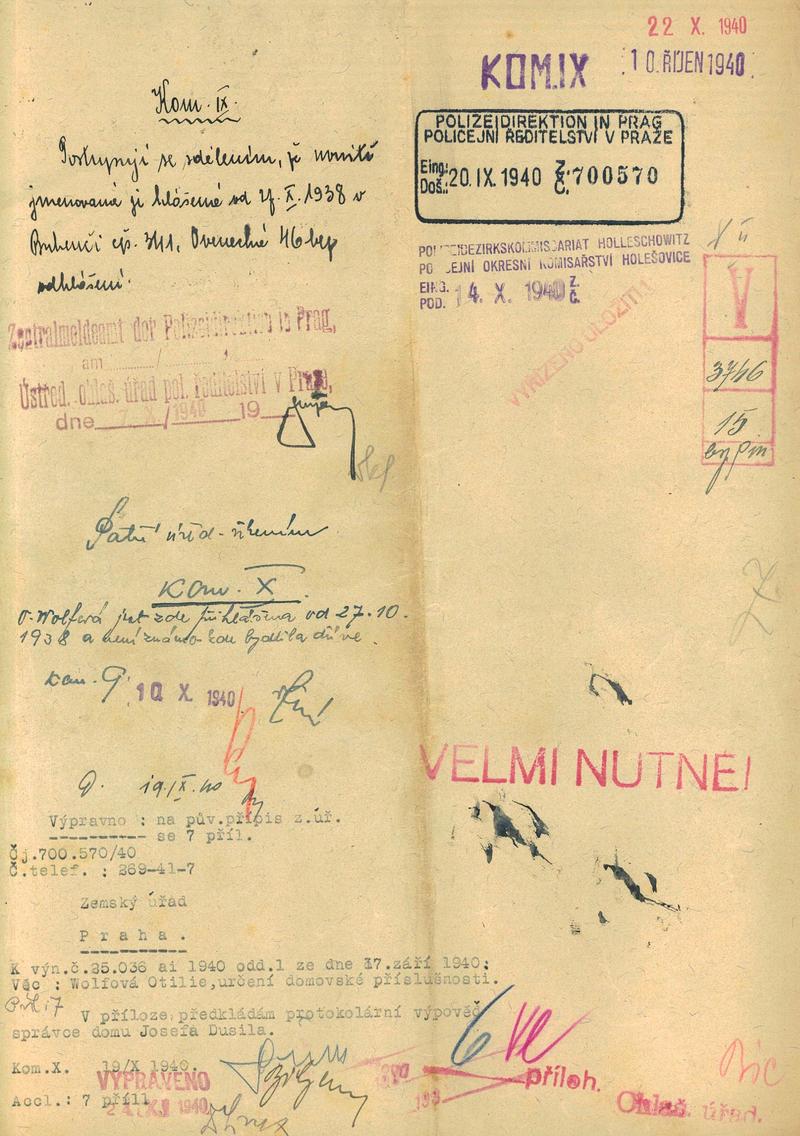 22 X. 1940
KOM.IX
10. ŘÍJEN 1940
POLIZEIDIREKTION IN PRAG
POLICEJNÍ ŘEDITELSTVÍ V PRAZE
Eing.:
Doš.: 20.IX.1940 Z. Č. 700570
POLIZEIBEZIRKSKOMMISSARIAT HOLLESCHOWITZ
POLICEJNÍ OKRESNÍ KOMISAŘSTVÍ HOLEŠOVICE
EING.
POD. 14. X. 1940 Z. Č.
VYŘÍZENO ULOŽITI!
V
3746
15
Kom. IX.
Postupuji se sdělením, že
jmenovaná je hlášena od 27. X. 1938 v
Bubenči čp. 341, Ovenecká 46 bez
odhlášení.
Zentralmeldeamt der Polizeidirektion in Prag,
am
Ústřed. ohlaš. úřad pol. ředitelství v Praze,
dne X. 1940 19
Kom. X.
O. Wolfová jest zde přihlášena od 27.10.
1938 a není známo kde bydlila dříve.
Kom. 9.
10 X. 1940
VELMI NUTNÉ!
D. 19./X.40
Výpravno : na pův.přípis z.úř.
se 7 příl.
Čj.700.570/40
Č.telef. : 269-41-7
Zemský úřad
Praha.
K výn.č.25.036 ai 1940 odd.1 ze dne 17.září 1940:
Věc : Wolfová Otilie,určení domovské příslušnosti.
V příloze předkládám protokolární výpověď
správce domu Josefa Dusila.
Kom.X. 19/X 1940.
VYPRAVENO
Accl.: 7 příl.
příloh.
Ohlaš. úřad.